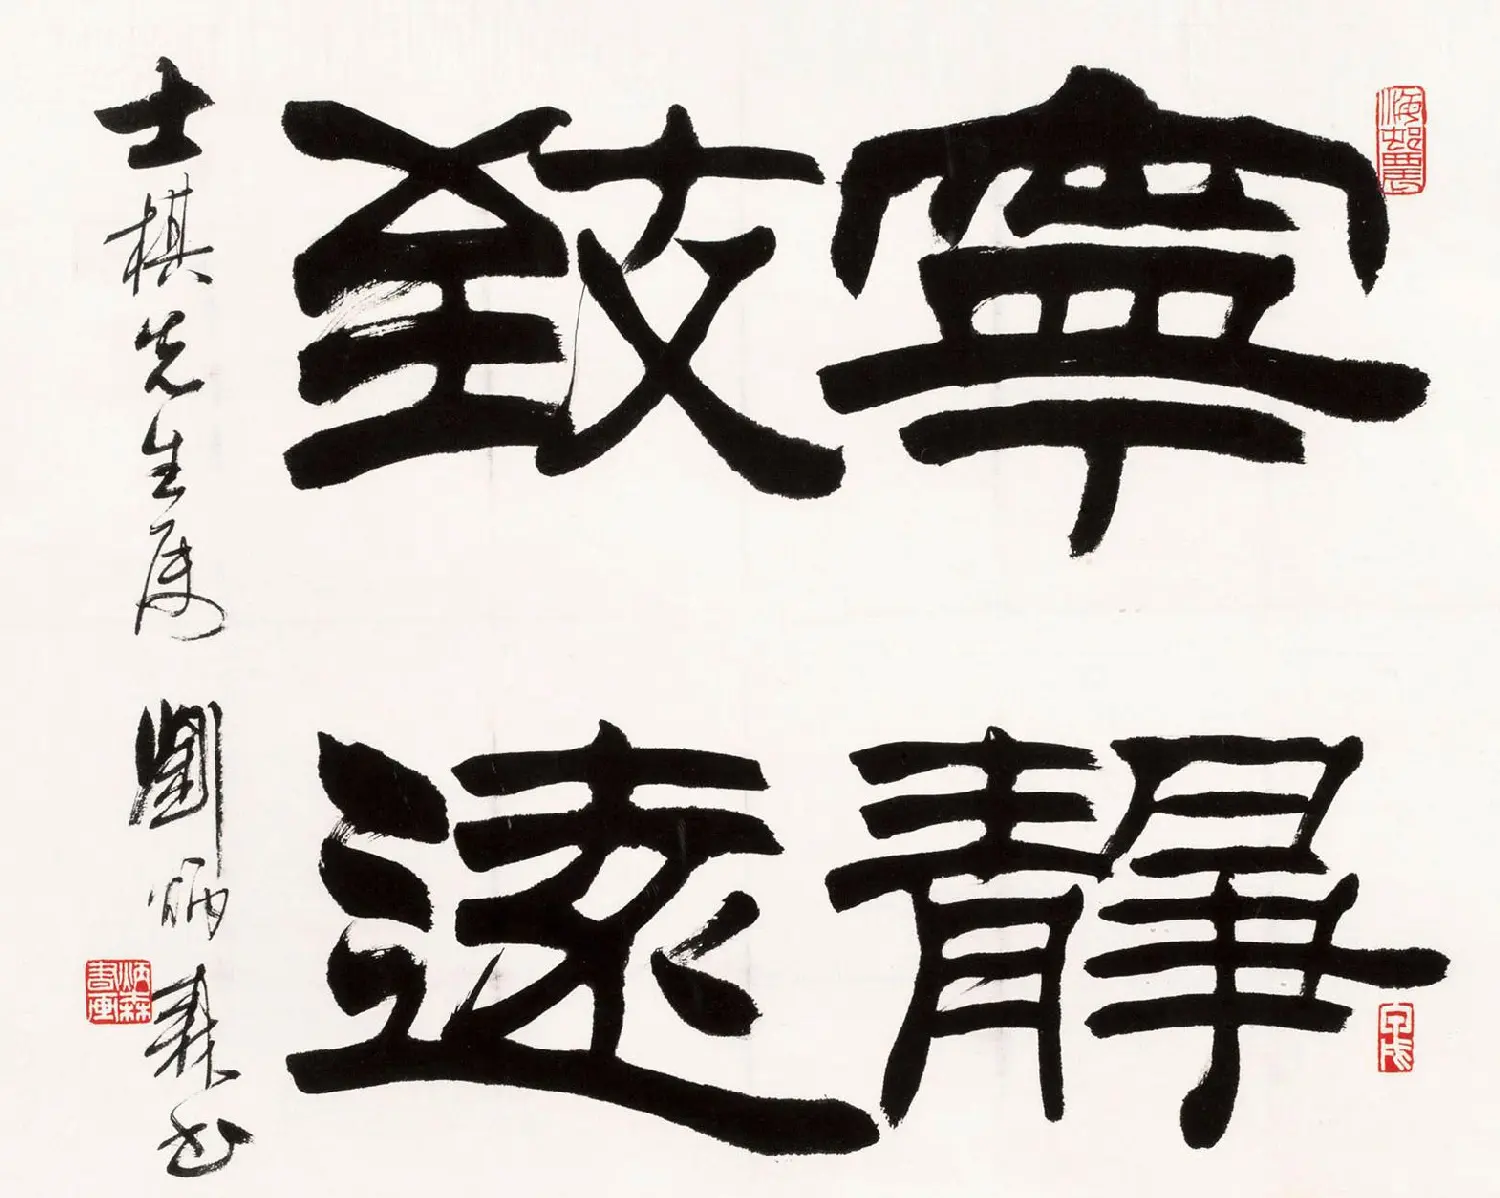 寧靜
致遠
士棋先生属 劉炳森书
炳森書画